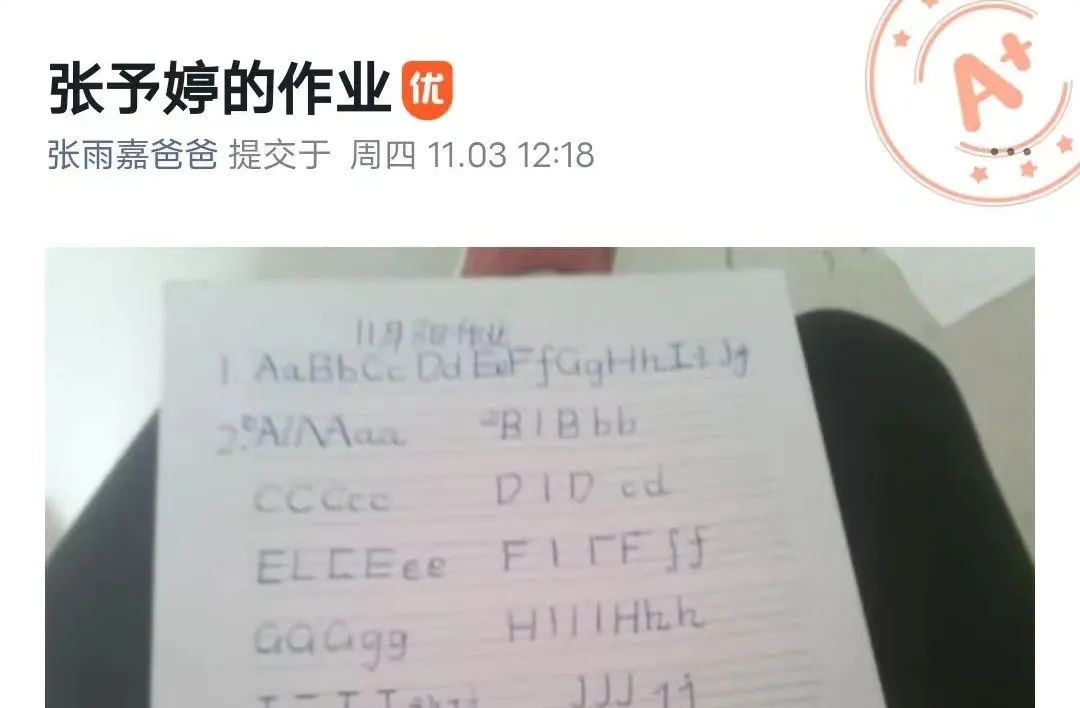 张予婷的作业 优
A+
张雨嘉爸爸 提交于 周四 11.03 12:18
11月3日作业
1. AaBbCcDdEeFfGgHhIiJj
2. A/ΛAaa B I B bb
CCCcc D I D cd
ELCEee F I ΓF ff
GGGgg H I I I Hhh
JJJ jj